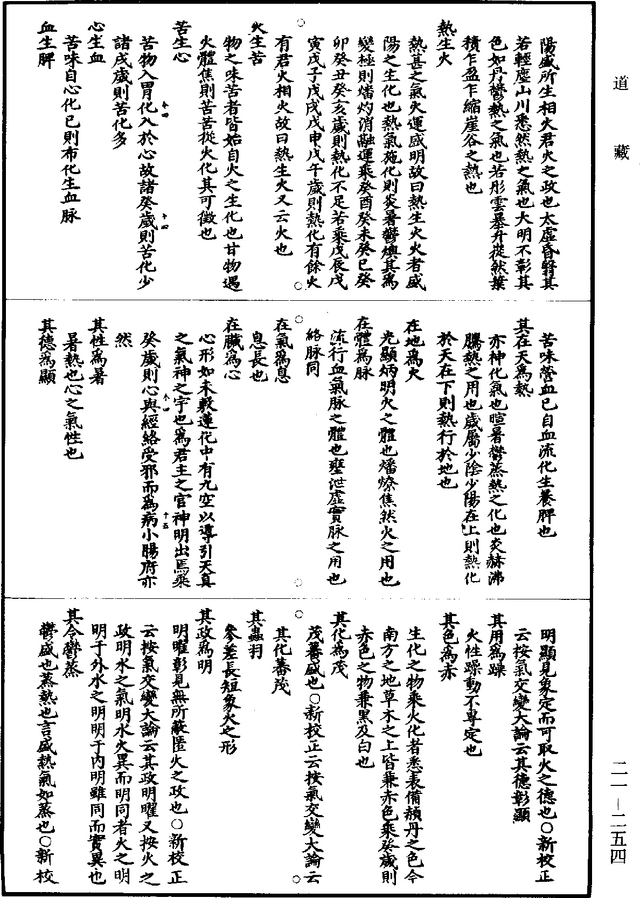 道藏
陽盛所生相火君火之政也太虛昏翳其
若輕塵山川悉然熱之氣也大明不彰其
色如丹鬱熱之氣也若彤雲暴升㒇然葉
積乍盈乍縮崖谷之熱也
熱生火
熱甚之氣火運盛明故曰熱生火火者盛
陽之生化也熱氣施化則炎暑鬱燠其為
變極則燔灼消融運乘癸酉癸未癸巳癸
卯癸丑癸亥歲則熱化不足若乘戊辰戊
寅戊子戊戌戊申戊午歲則熱化有餘火
有君火相火故曰熱生火又云火也
火生苦
物之味苦者皆始自火之生化也甘物遇
火體焦則苦苦從火化其可徵也
苦生心
苦物入胃化入於心故諸癸歲則苦化少
諸戊歲則苦化多
心生血
苦味自心化已則布化生血脉
血生脾
苦味營血已自血流化生養脾也
其在天為熱
亦神化氣也暄暑鬱蒸熱之化也炎赫沸
騰熱之用也歲屬少陰少陽在上則熱化
於天在下則熱行於地也
在地為火
光顯炳明火之體也燔燎焦然火之用也
在體為脉
流行血氣脉之體也壅泄虛實脉之用也
絡脉同
在氣為息
息長也
在臟為心
心形如未敷蓮花中有九空以導引天真
之氣神之宇也為君主之官神明出焉乘
癸歲則心與經絡受邪而為病小腸府亦
然
其性為暑
暑熱也心之氣性也
其德為顯
明顯見象定而可取火之德也○新校正
云按氣交變大論云其德彰顯
其用為躁
火性躁動不專定也
其色為赤
生化之物乘火化者悉表備赭丹之色今
南方之地草木之上皆兼赤色乘癸歲則
赤色之物兼黑及白也
其化為茂
茂蕃盛也○新校正云按氣交變大論云
其化蕃茂
其蟲羽
參差長短象火之形
其政為明
明曜彰見無所蔽匿火之政也○新校正
云按氣交變大論云其政明曜又按火之
政明水之氣明水火異而明同者火之明
明于外水之明明于內明雖同而實異也
其令鬱蒸
鬱盛也蒸熱也言盛熱氣如蒸也○新校
二一—二五四